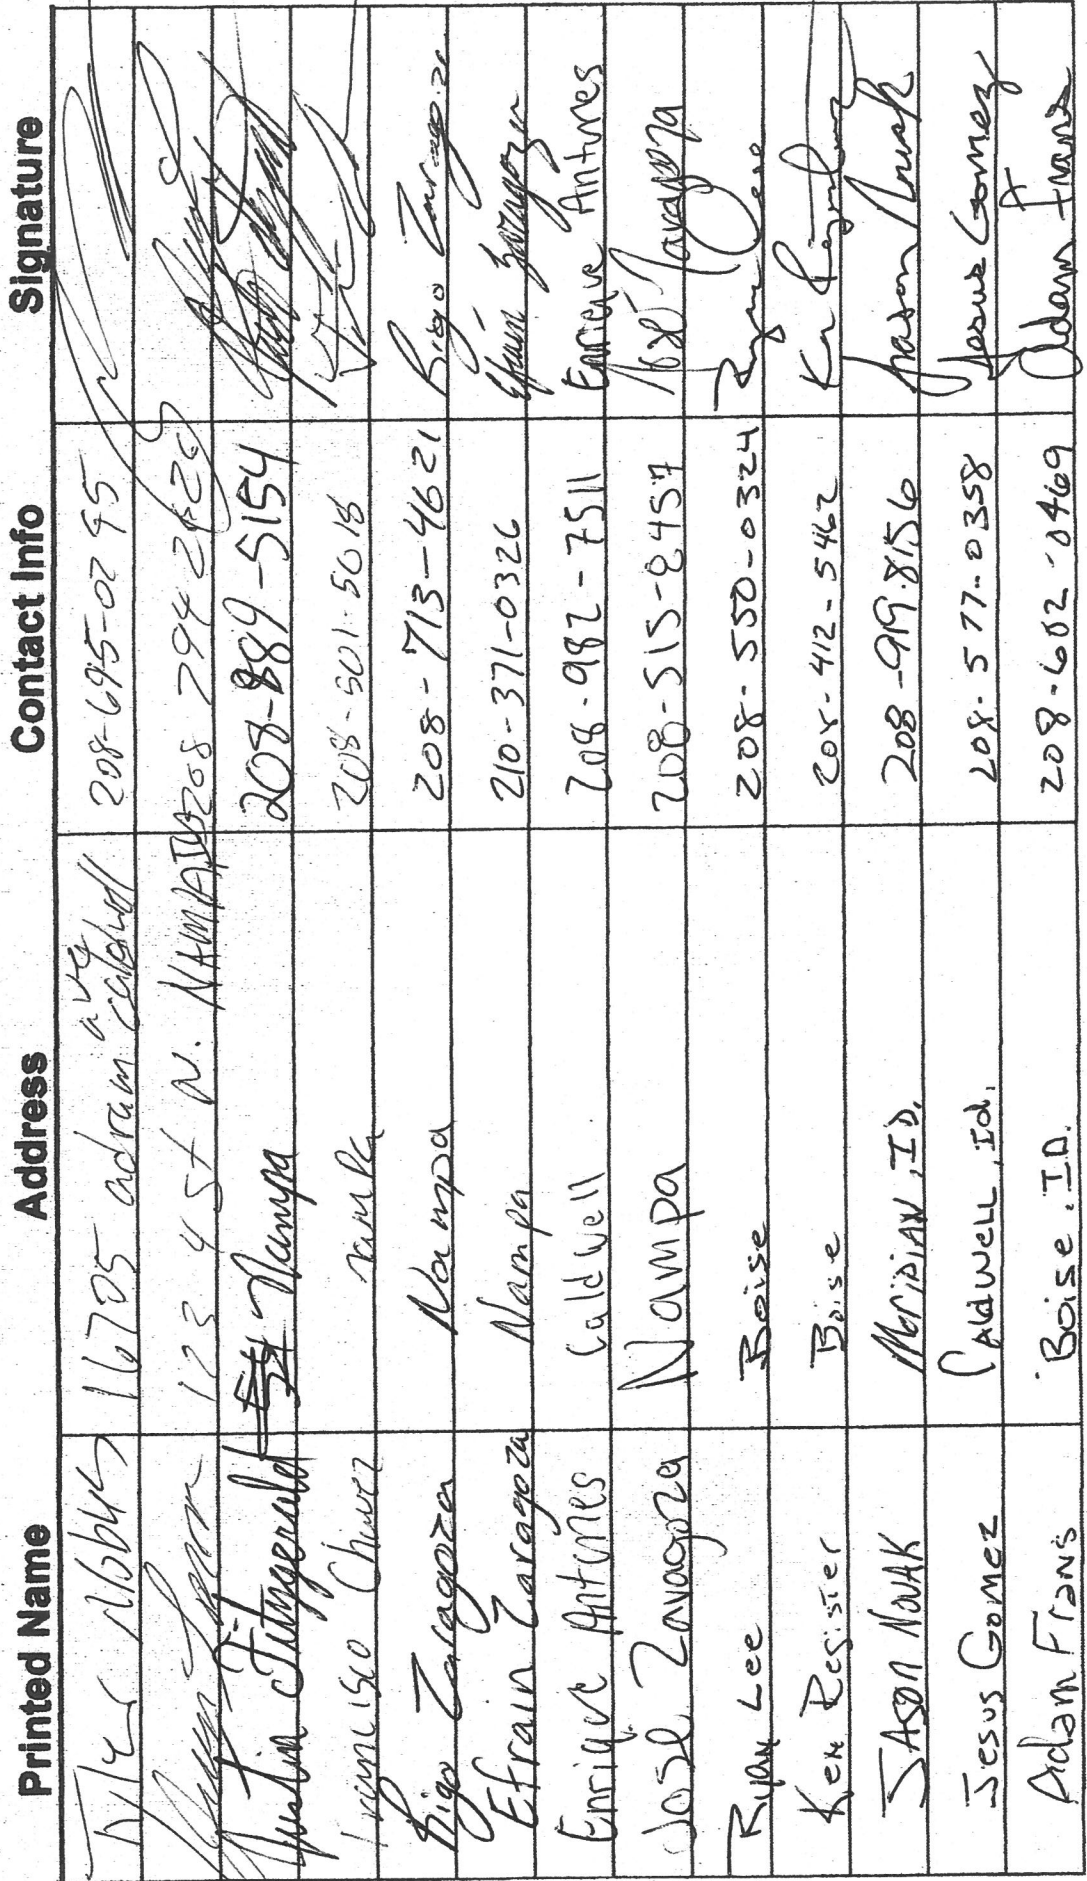 Printed Name Address Contact Info Signature
Tyler Nibbus 16705 adram ave caldwell 208-695-0295
123 4 st N. NAMPA ID 208 794 2626
Justin Fitzgerald Nampa 208-889-5154
Francisco Chavez nampa 208-501-5018
Rigo Zaragoza Nampa 208-713-4621 Rigo Zaragoza
Efrain Zaragoza Nampa 210-371-0326 Efrain Zaragoza
Enrique Antunes Caldwell 208-982-7511 Enrique Antunes
Jose Zaragoza Nampa 208-515-8457 Jose Zaragoza
Ryan Lee Boise 208-550-0324 Ryan Lee
Ken Register Boise 208-412-5462 Ken Register
JASON NOVAK MeriDiAN, ID. 208-919-8156 Jason Novak
Jesus Gomez CAldwell, Id. 208-577-0358 Jesus Gomez
Adam Frans Boise. ID. 208-602-0469 Adam Frans